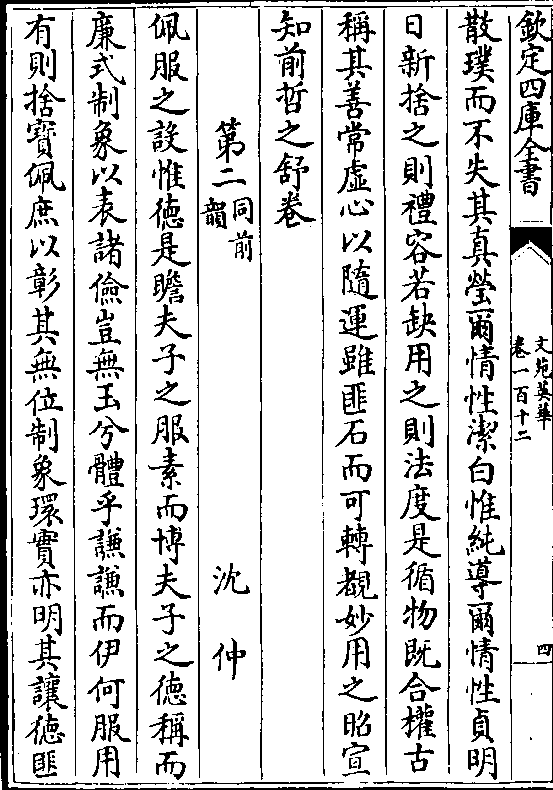 欽定四庫全書
文苑英華
卷一百十二
四
散璞而不失其真瑩爾情性潔白惟純導爾情性貞明
日新捨之則禮容若缺用之則法度是循物既合權古
稱其善常虛心以隨運雖匪石而可轉覩妙用之昭宣
知前哲之舒卷
第二同前韻
沈仲
佩服之設惟德是瞻夫子之服素而博夫子之德稱而
廉式制象以表諸儉豈無玉兮體乎謙謙而伊何服用
有則捨寶佩庶以彰其無位制象環實亦明其讓德匪